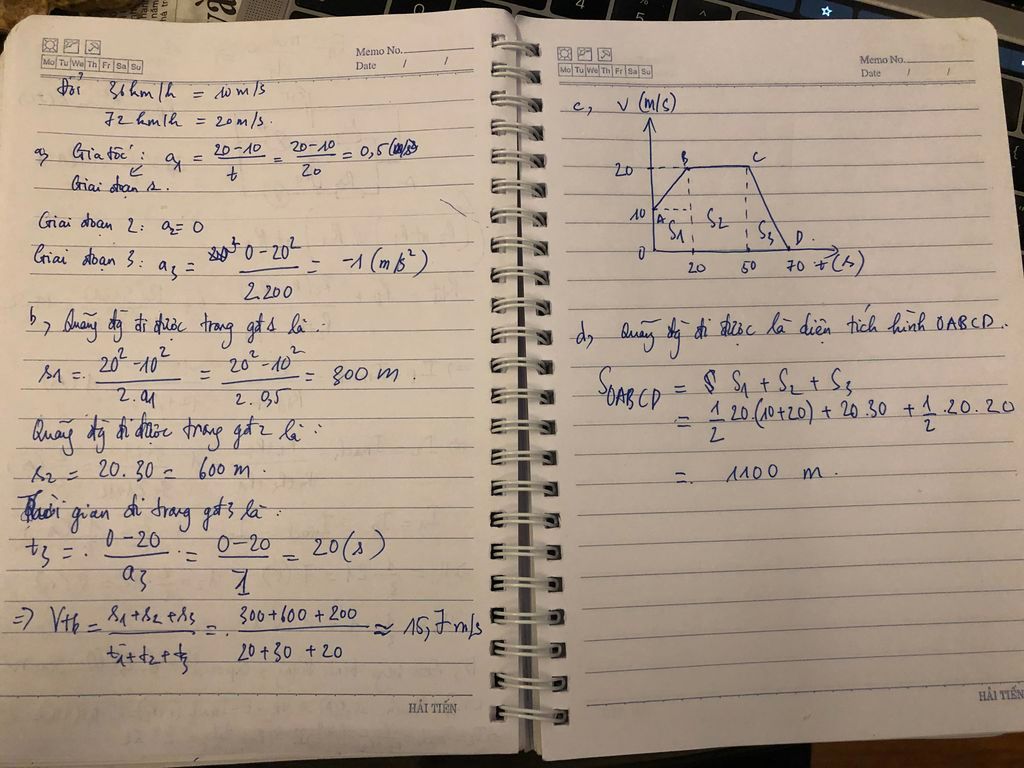 Memo No.
Mo Tu We Th Fr Sa Su
Date / /
Đổi 36km/h = 10m/s
72km/h = 20m/s.
a, Gia tốc: a1 = (20-10)/t = (20-10)/20 = 0,5 (m/s²
Giai đoạn 1.
Giai đoạn 2: a2 = 0
Giai đoạn 3: a3 = (0-20²)/(2.200) = -1 (m/s²)
b, Quãng đg đi được trong gđ1 là :
s1 = (20²-10²)/(2.a1) = (20²-10²)/(2.0,5) = 300 m.
Quãng đg đi được trong gđ2 là :
s2 = 20.30 = 600 m.
Thời gian đi trong gđ3 là :
t3 = (0-20)/a3 = (0-20)/1 = 20 (s)
=> Vtb = (s1+s2+s3)/(t1+t2+t3) = (300+600+200)/(20+30+20) ≈ 15,7 m/s
HẢI TIẾN
Memo No.
Mo Tu We Th Fr Sa Su
Date / /
c, V (m/s)
20 B C
10 A
S1 S2 S3 D.
0 20 50 70 t (s)
d, Quãng đg đi được là diện tích hình OABCD.
S OABCD = S1 + S2 + S3
= 1/2 20.(10+20) + 20.30 + 1/2 .20.20
= 1100 m.
HẢI TIẾN